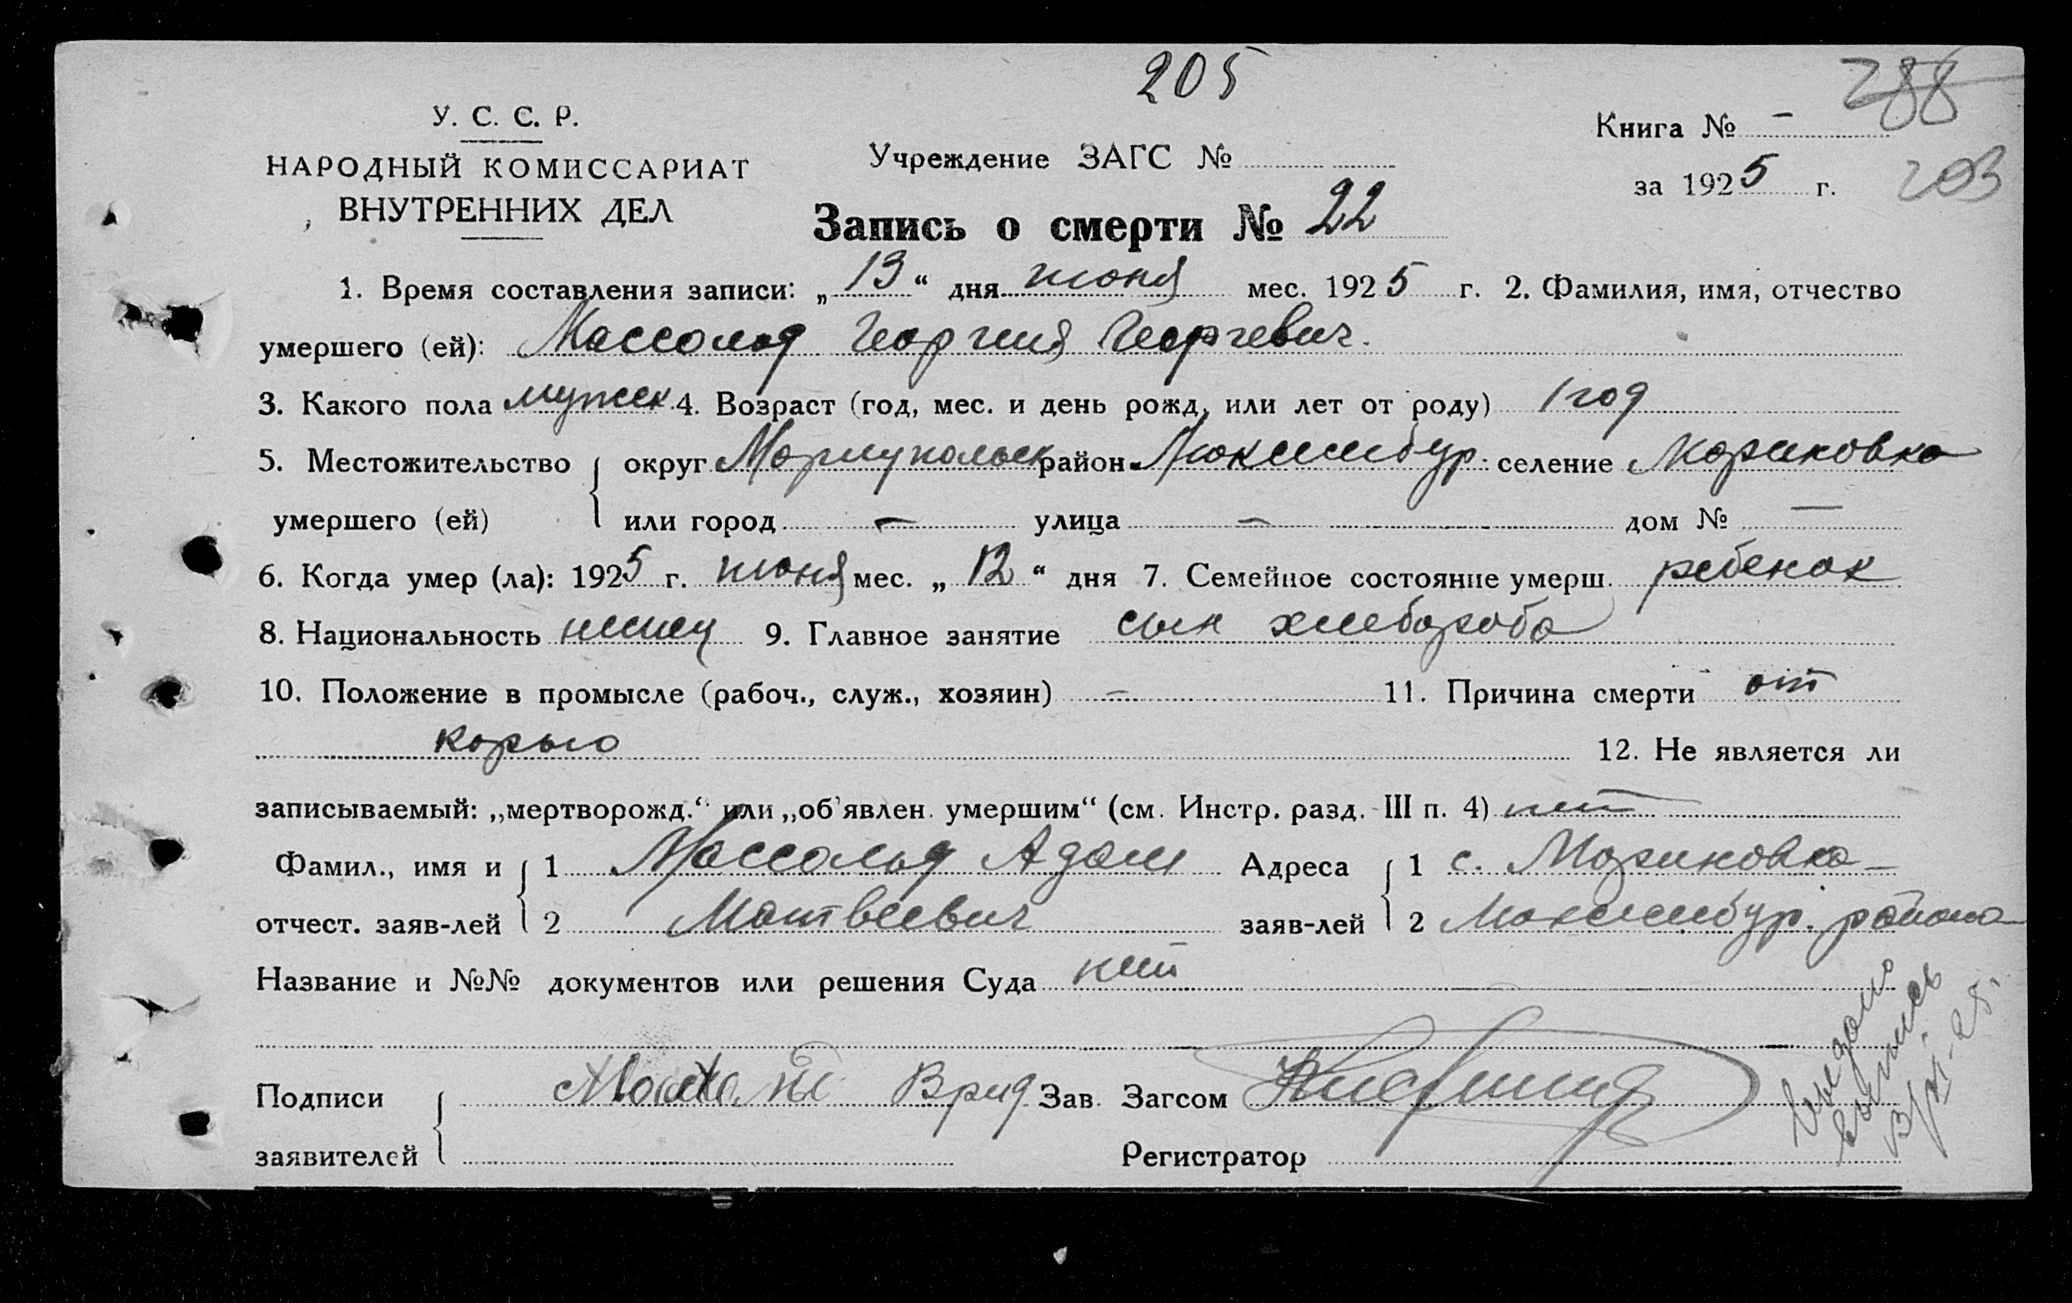 205
288
У. С. С. Р.
НАРОДНЫЙ КОМИССАРИАТ
ВНУТРЕННИХ ДЕЛ
Учреждение ЗАГС №
Книга № –
за 1925 г.
203
Запись о смерти № 22
1. Время составления записи: „13“ дня июня мес. 1925 г. 2. Фамилия, имя, отчество
умершего (ей): Массольд Георгия Георгевич.
3. Какого пола мужск. 4. Возраст (год, мес. и день рожд, или лет от роду) 1 год
5. Местожительство округ Мариупольск район Люксембур. селение Мариновка
умершего (ей) или город – улица – дом № –
6. Когда умер (ла): 1925 г. июня мес. „12“ дня 7. Семейное состояние умерш. ребенок
8. Национальность немец 9. Главное занятие сын хлебороба
10. Положение в промысле (рабоч., служ., хозяин) – 11. Причина смерти от
корью 12. Не является ли
записываемый: „мертворожд.“ или „об'явлен. умершим“ (см. Инстр. разд. III п. 4) нет
Фамил., имя и 1 Массольд Адам Адреса 1 с. Мариновка
отчест. заяв-лей 2 Матвеевич заяв-лей 2 Люксембур. района
Название и №№ документов или решения Суда нет
Подписи Врид Зав. Загсом
заявителей Регистратор